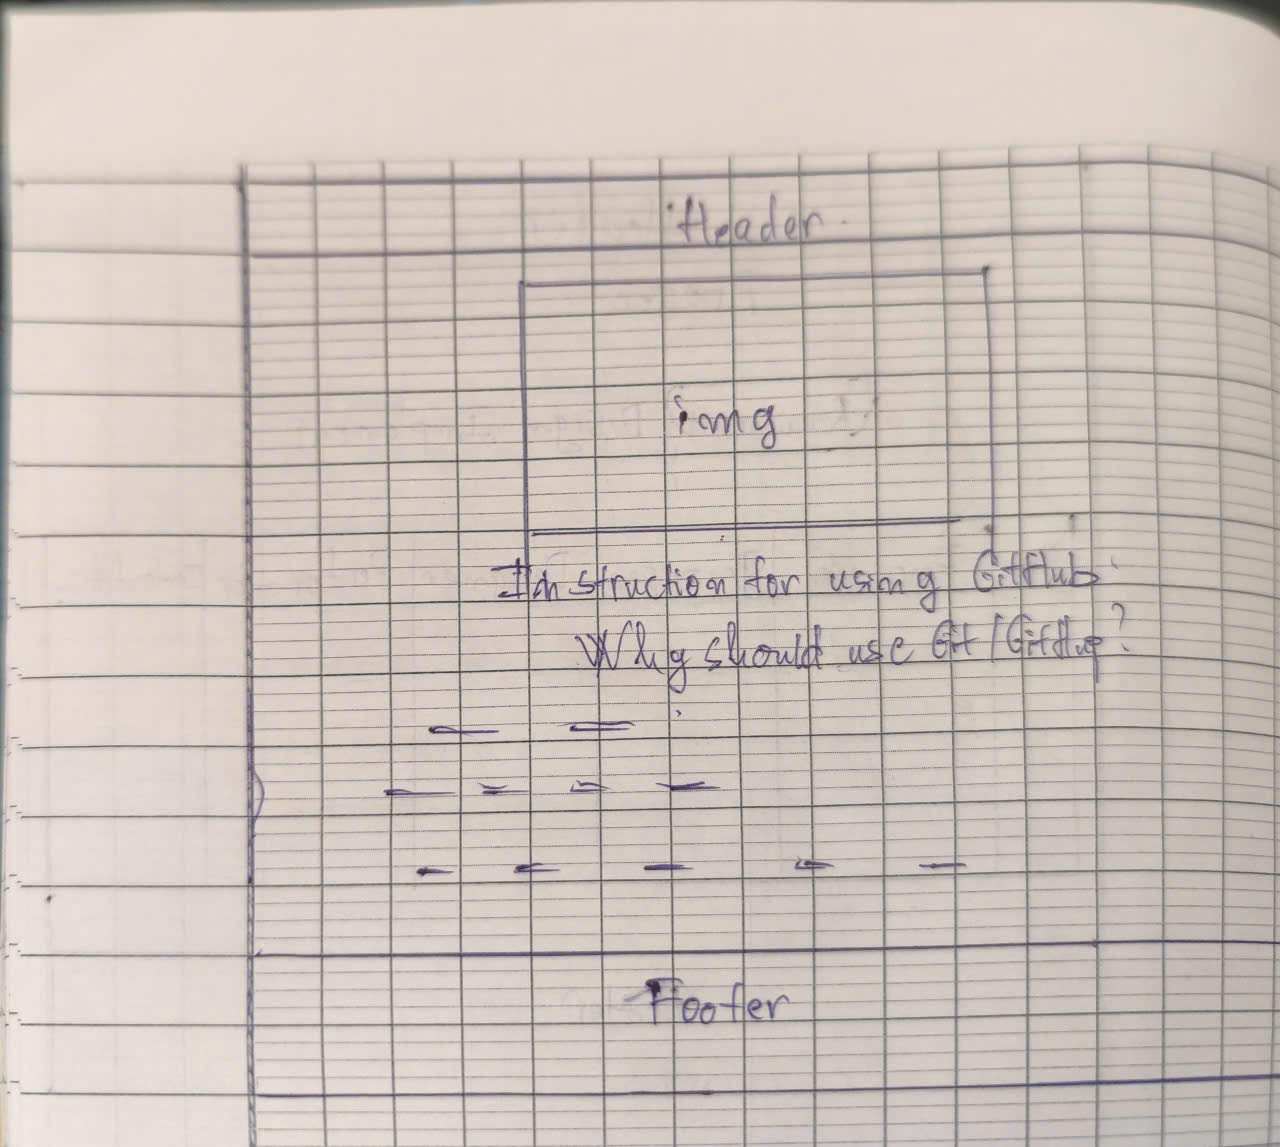 Header
img
Instruction for using GitHub
Why should use Git/GitHup?
Footer